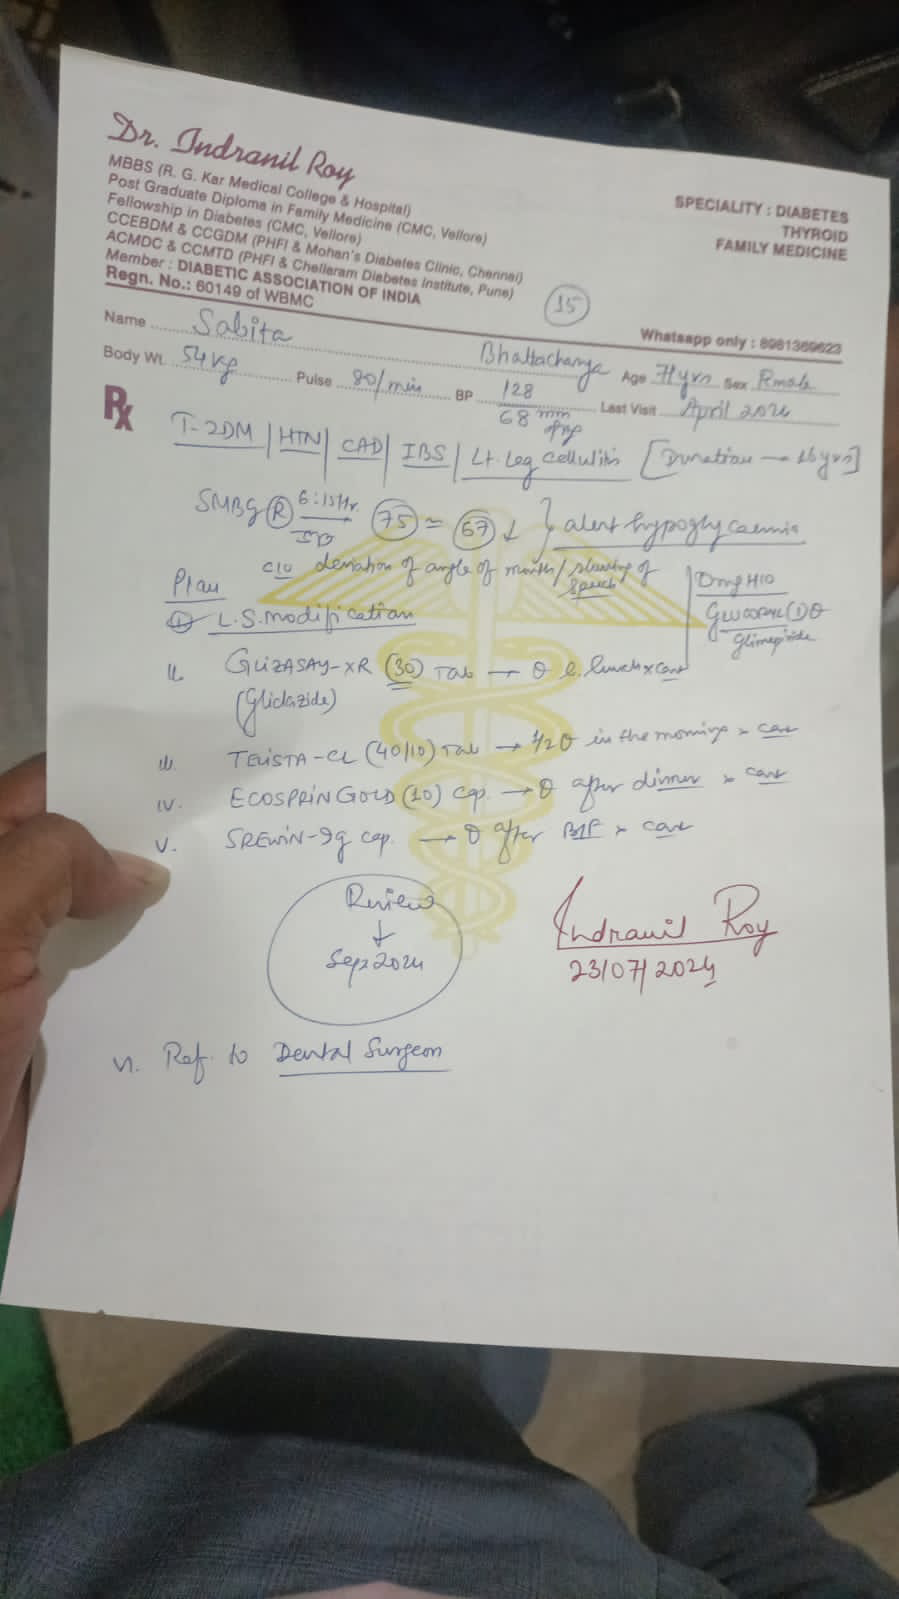 Dr. Indranil Roy
MBBS (R. G. Kar Medical College & Hospital)
Post Graduate Diploma in Family Medicine (CMC, Vellore)
Fellowship in Diabetes (CMC, Vellore)
CCEBDM & CCGDM (PHFI & Mohan's Diabetes Clinic, Chennai)
ACMDC & CCMTD (PHFI & Chellaram Diabetes Institute, Pune)
Member : DIABETIC ASSOCIATION OF INDIA
Regn. No.: 60149 of WBMC
SPECIALITY : DIABETES
THYROID
FAMILY MEDICINE
15
Whatsapp only : 8981369623
Name Sabita Bhattacharya Age yrs Sex Female
Body Wt. 54 kg Pulse 80/min BP 128/68 mm of Hg Last Visit April 2024
Rx
T-2DM | HTN | CAD | IBS | Lt. Leg Cellulitis [Duration → 16 yrs]
SMBG (R) 75 ≃ 67 ↓ } alert hypoglycaemia
c/o deviation of angle of mouth / slurring of speech
Plan
H/O
Glimepiride
I. L.S. modification
II. GLIZASAY-XR (30) Tab → lunch x cont
(Gliclazide)
III. TELISTA-CL (40/10) Tab → 1/2 in the morning x cont
IV. ECOSPRIN GOLD (10) cap. → after dinner x cont
V. cap. → after B/F x cont
Review
↓
Sep 2024
Indranil Roy
23/07/2024
VI. Ref. to Dental Surgeon